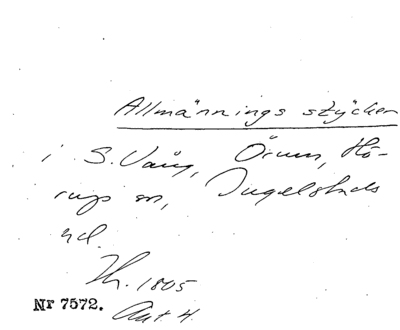 Allmännings stycken
i S. Vång, Örum, Hö-
rups sn, Ingelstads
hd.
Th. 1805
Nr 7572. Akt 4.